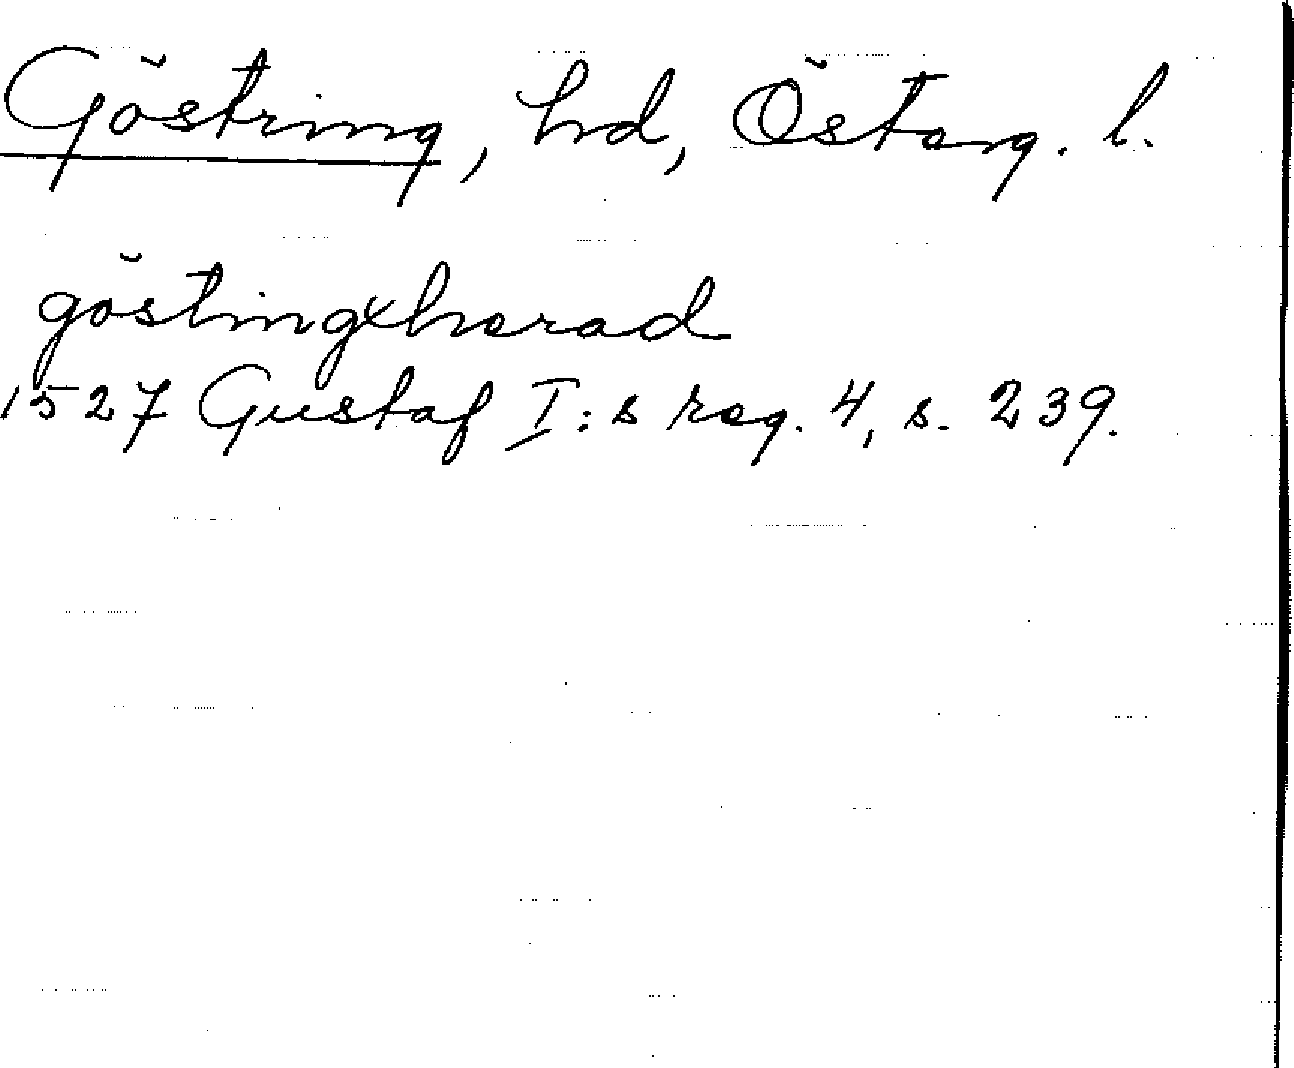 Göstring, hd, Österg. l.
göstingxherad
1527 Gustaf I:s reg. 4, s. 239.